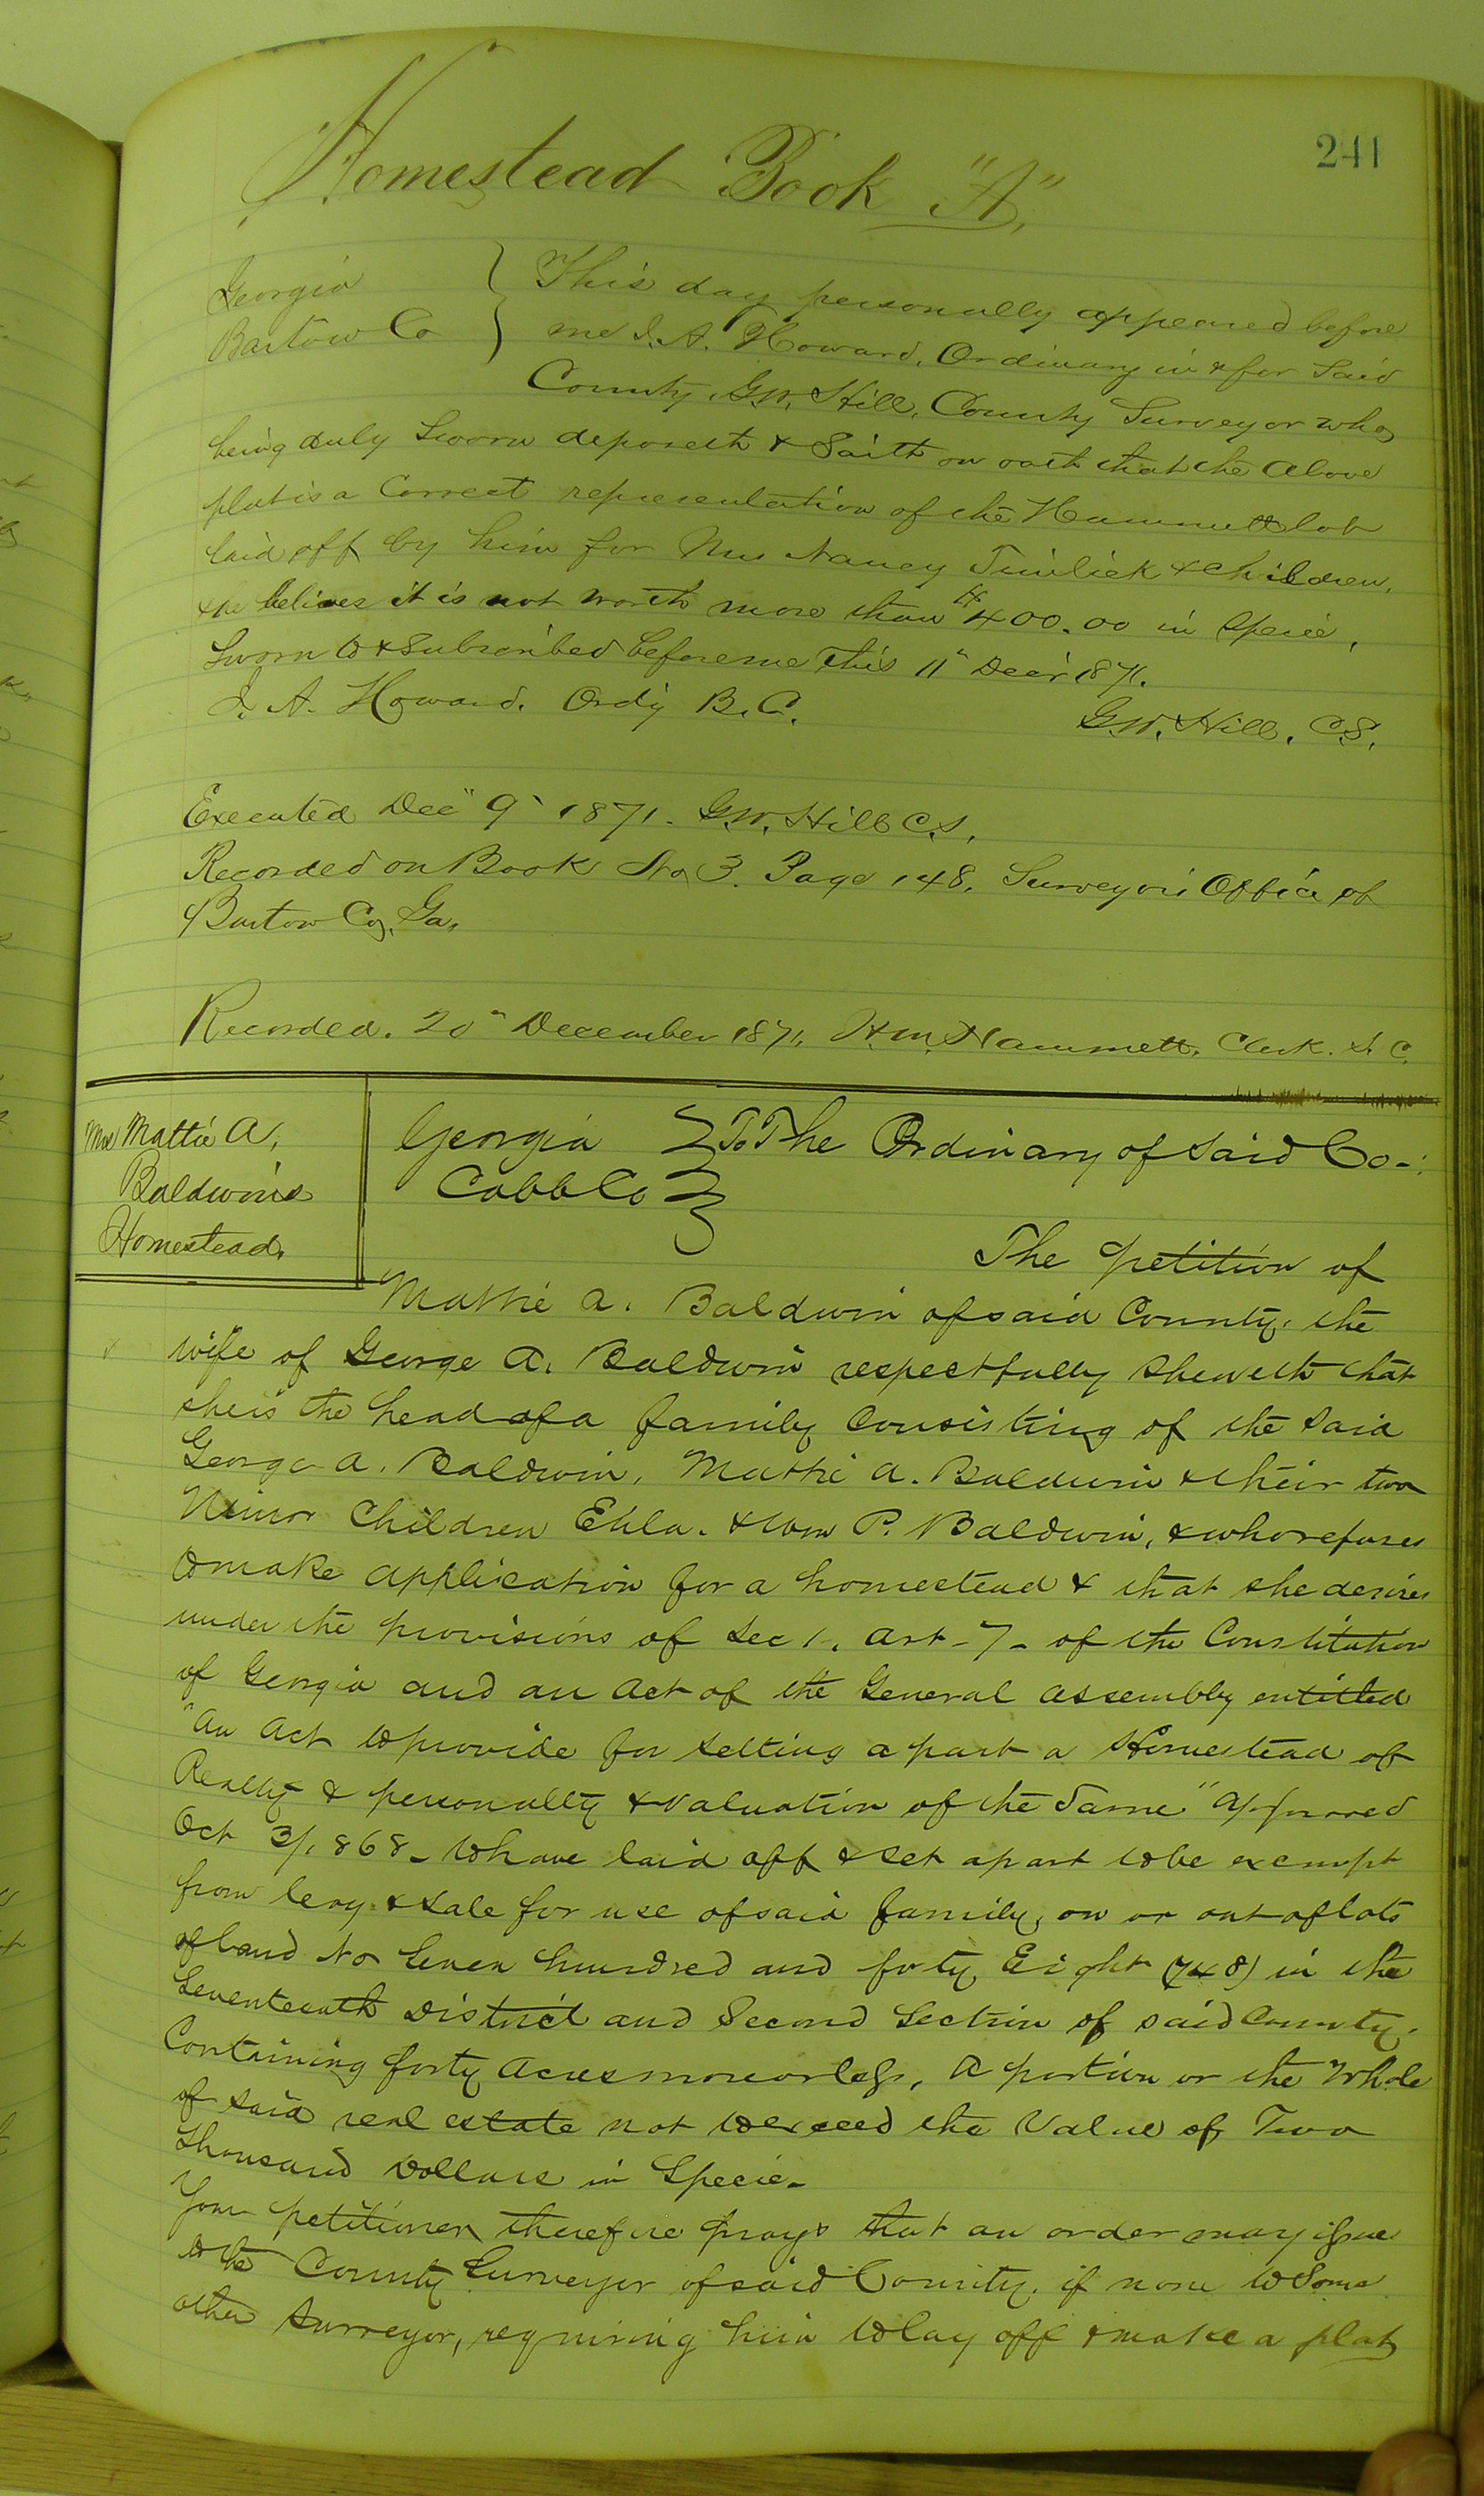 241
Homestead Book "A",
Georgia
Bartow Co
This day personally appeared before
me J. A. Howard, Ordinary in & for Said
County, G.W. Hill, County Surveyor who
being duly Sworn deposeth & Saith on oath that the Above
plat is a Correct representation of the Hammett lot
laid off by him for Mrs Nancy & children,
& he believes it is not worth more than $400.00 in Specie,
Sworn to & Subscribed before me This 11" Decr 1871.
J. A. Howard. Ordy B. C.
G.W. Hill, C.S.
Executed Dec" 9" 1871. G.W. Hill C.S.
Recorded on Book No 3. Page 148. Surveyors Office of
Bartow Co, Ga,
Recorded. 20" December 1871, H.M. Hammett, Clerk. S. C.
Mrs Mattie A,
Baldwin's
Homestead,
Georgia
Cobb Co
To The Ordinary of Said Co-:
The petition of
Mattie A. Baldwin of said County, the
wife of George A. Baldwin respectfully Sheweth that
she is the head of a family Consisting of the Said
George A. Baldwin, Mattie A. Baldwin & their two
Minor Children & Wm P. Baldwin, & who refuses
to make application for a homestead & that she desires
under the provisions of Sec 1, Art-7- of the Constitution
of Georgia and an Act of the General Assembly entitled
"An Act to provide for Setting apart a Homestead of
Realty & personalty & valuation of the Same" approved
Oct 3/, 868- to have laid off & set apart to be exempt
from levy & Sale for use of said family, on or out of lots
of land No Seven hundred and forty Eight (748) in the
Seventeenth District and Second Section of said County.
Containing forty Acres more or less, a portion or the Whole
of said real estate not to exceed the Value of Two
thousand Dollars in Specie-
Your petitioner therefore prays that an order may issue
to the County Surveyor of said County, if none to Some
other Surveyor, requiring him to lay off & make a plat